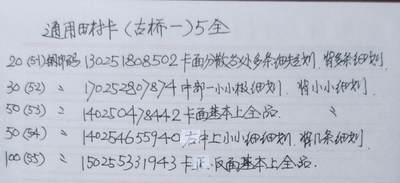 通用田村卡（古桥一）5全
20(51)编码 130251808502 卡面分散各处多条细划，背多条细划.
30(52) 〃 170252807874 中部一小小板细划，背小小细划.
50(53) 〃 140250478442 卡面基本上全品. 〃
50(54) 〃 140254655940 右中上小小细细划，背几条细划.
100(55) 〃 150255331943 卡正.反面基本上全品.